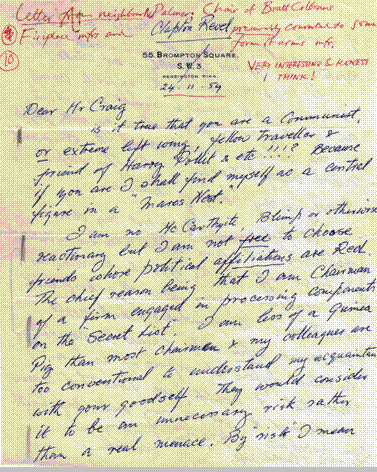 Letter from neighbour Palmer, Chair of Bratt Colbrans
Fireplace mfrs and presumably connected to some
form of arms mfr.
10
VERY INTERESTING & HONEST
I THINK!
Clapton Revel
55. BROMPTON SQUARE.
S.W.3
KENSINGTON
24.11.54
Dear Mr Craig
is it true that you are a Communist,
or extreme left wing, fellow traveller &
friend of Harry Pollit & etc !!!? Because
if you are I shall find myself as a central
figure in a "Mares Nest."
I am no McCarthyite, Blimp or otherwise
reactionary but I am not free to choose
friends whose political affiliations are Red.
The chief reason being that I am Chairman
of a firm engaged in processing components
on the "Secret List". I am less of a Guinea
Pig than most chairmen & my colleagues are
too conventional to understand my acquaintance
with your goodself. They would consider
it to be an unnecessary risk rather
than a real menace. By "risk" I mean